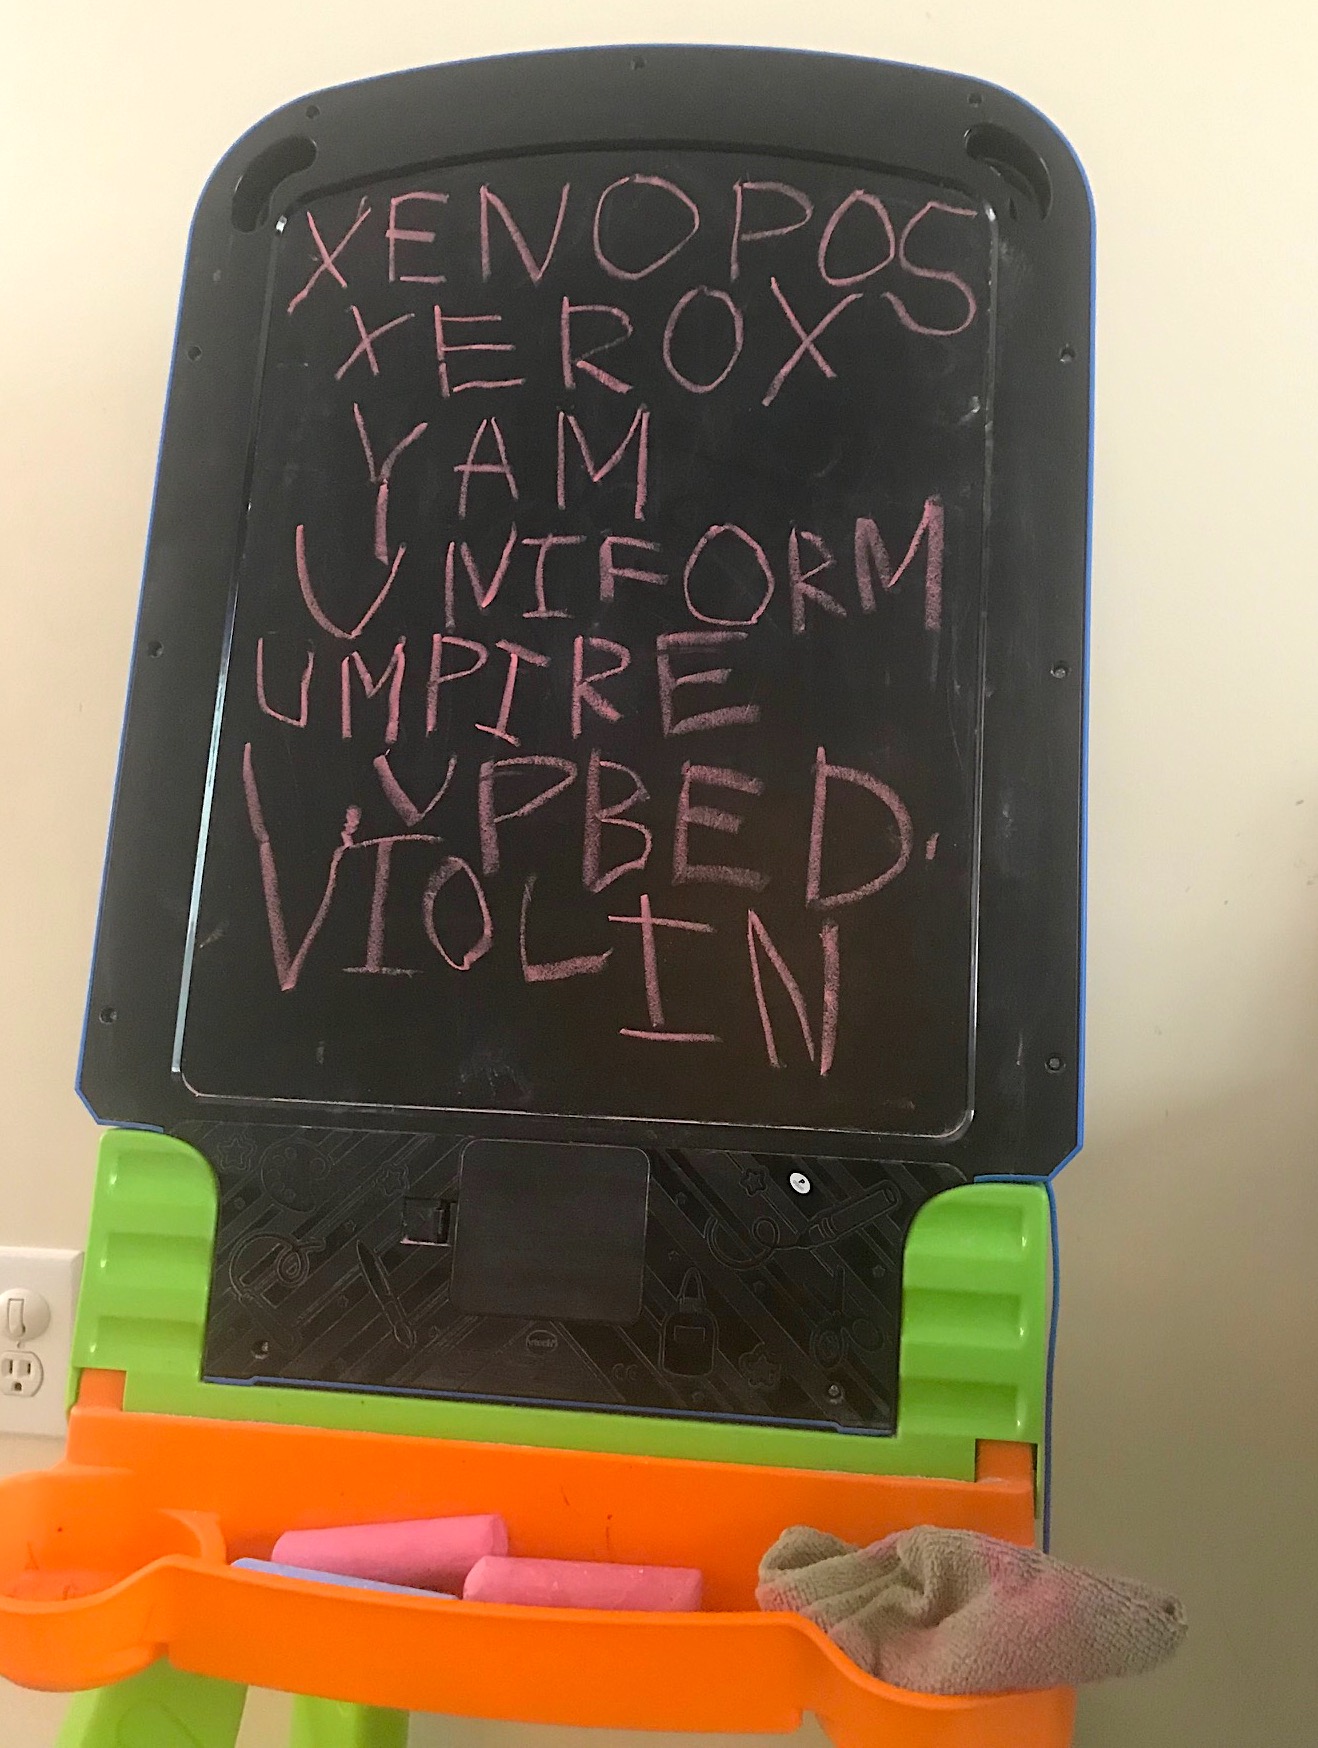 XENOPOS
XEROX
YAM
UNIFORM
UMPIRE
UPBED.
VIOLIN
vtech
CE